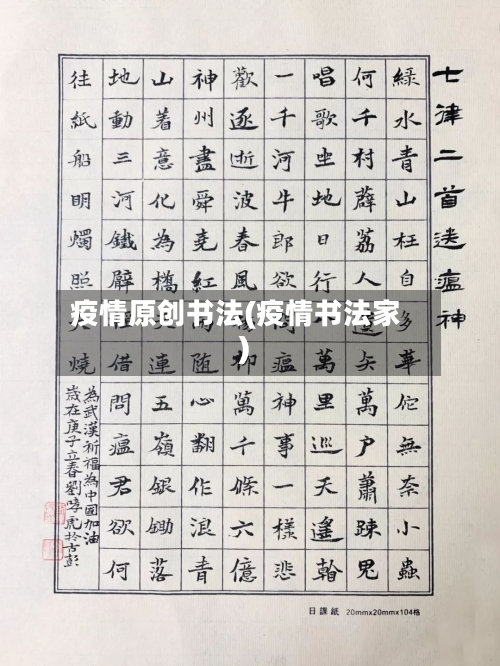 七律二首送瘟神
綠水青山枉自多華佗無奈小蟲
何千村薜荔人遺矢萬戶蕭疎鬼
唱歌坐地日行萬里巡天遙
一千河牛郎欲瘟神事一樣悲
歡逐逝波春風柳萬千條六億
神州盡舜堯紅随心翻作浪青
山着意化為橋連五嶺銀鋤落
地動三河鐵臂借問瘟君欲何
往紙船明燭照燒
為武漢祈福為中國加油
歲在庚子立春劉虎於古彭
疫情原创书法(疫情书法家
)
日課紙 20mmx20mmx104格